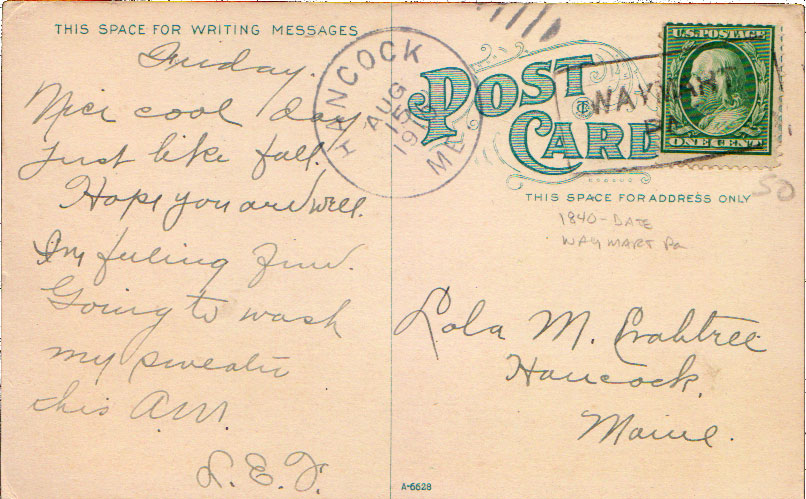 THIS SPACE FOR WRITING MESSAGES
Friday.
Nice cool day
just like fall.
Hope you are well.
Im feeling fine.
Going to wash
my sweater
this A.M.
L. E. F.
HANCOCK
AUG
15
ME
POST
CARD
WAYMART
U.S. POSTAGE
ONE CENT
THIS SPACE FOR ADDRESS ONLY
50
1840-DATE
WAYMART Pa
Lola M. Crabtree
Hancock,
Maine.
A-6628